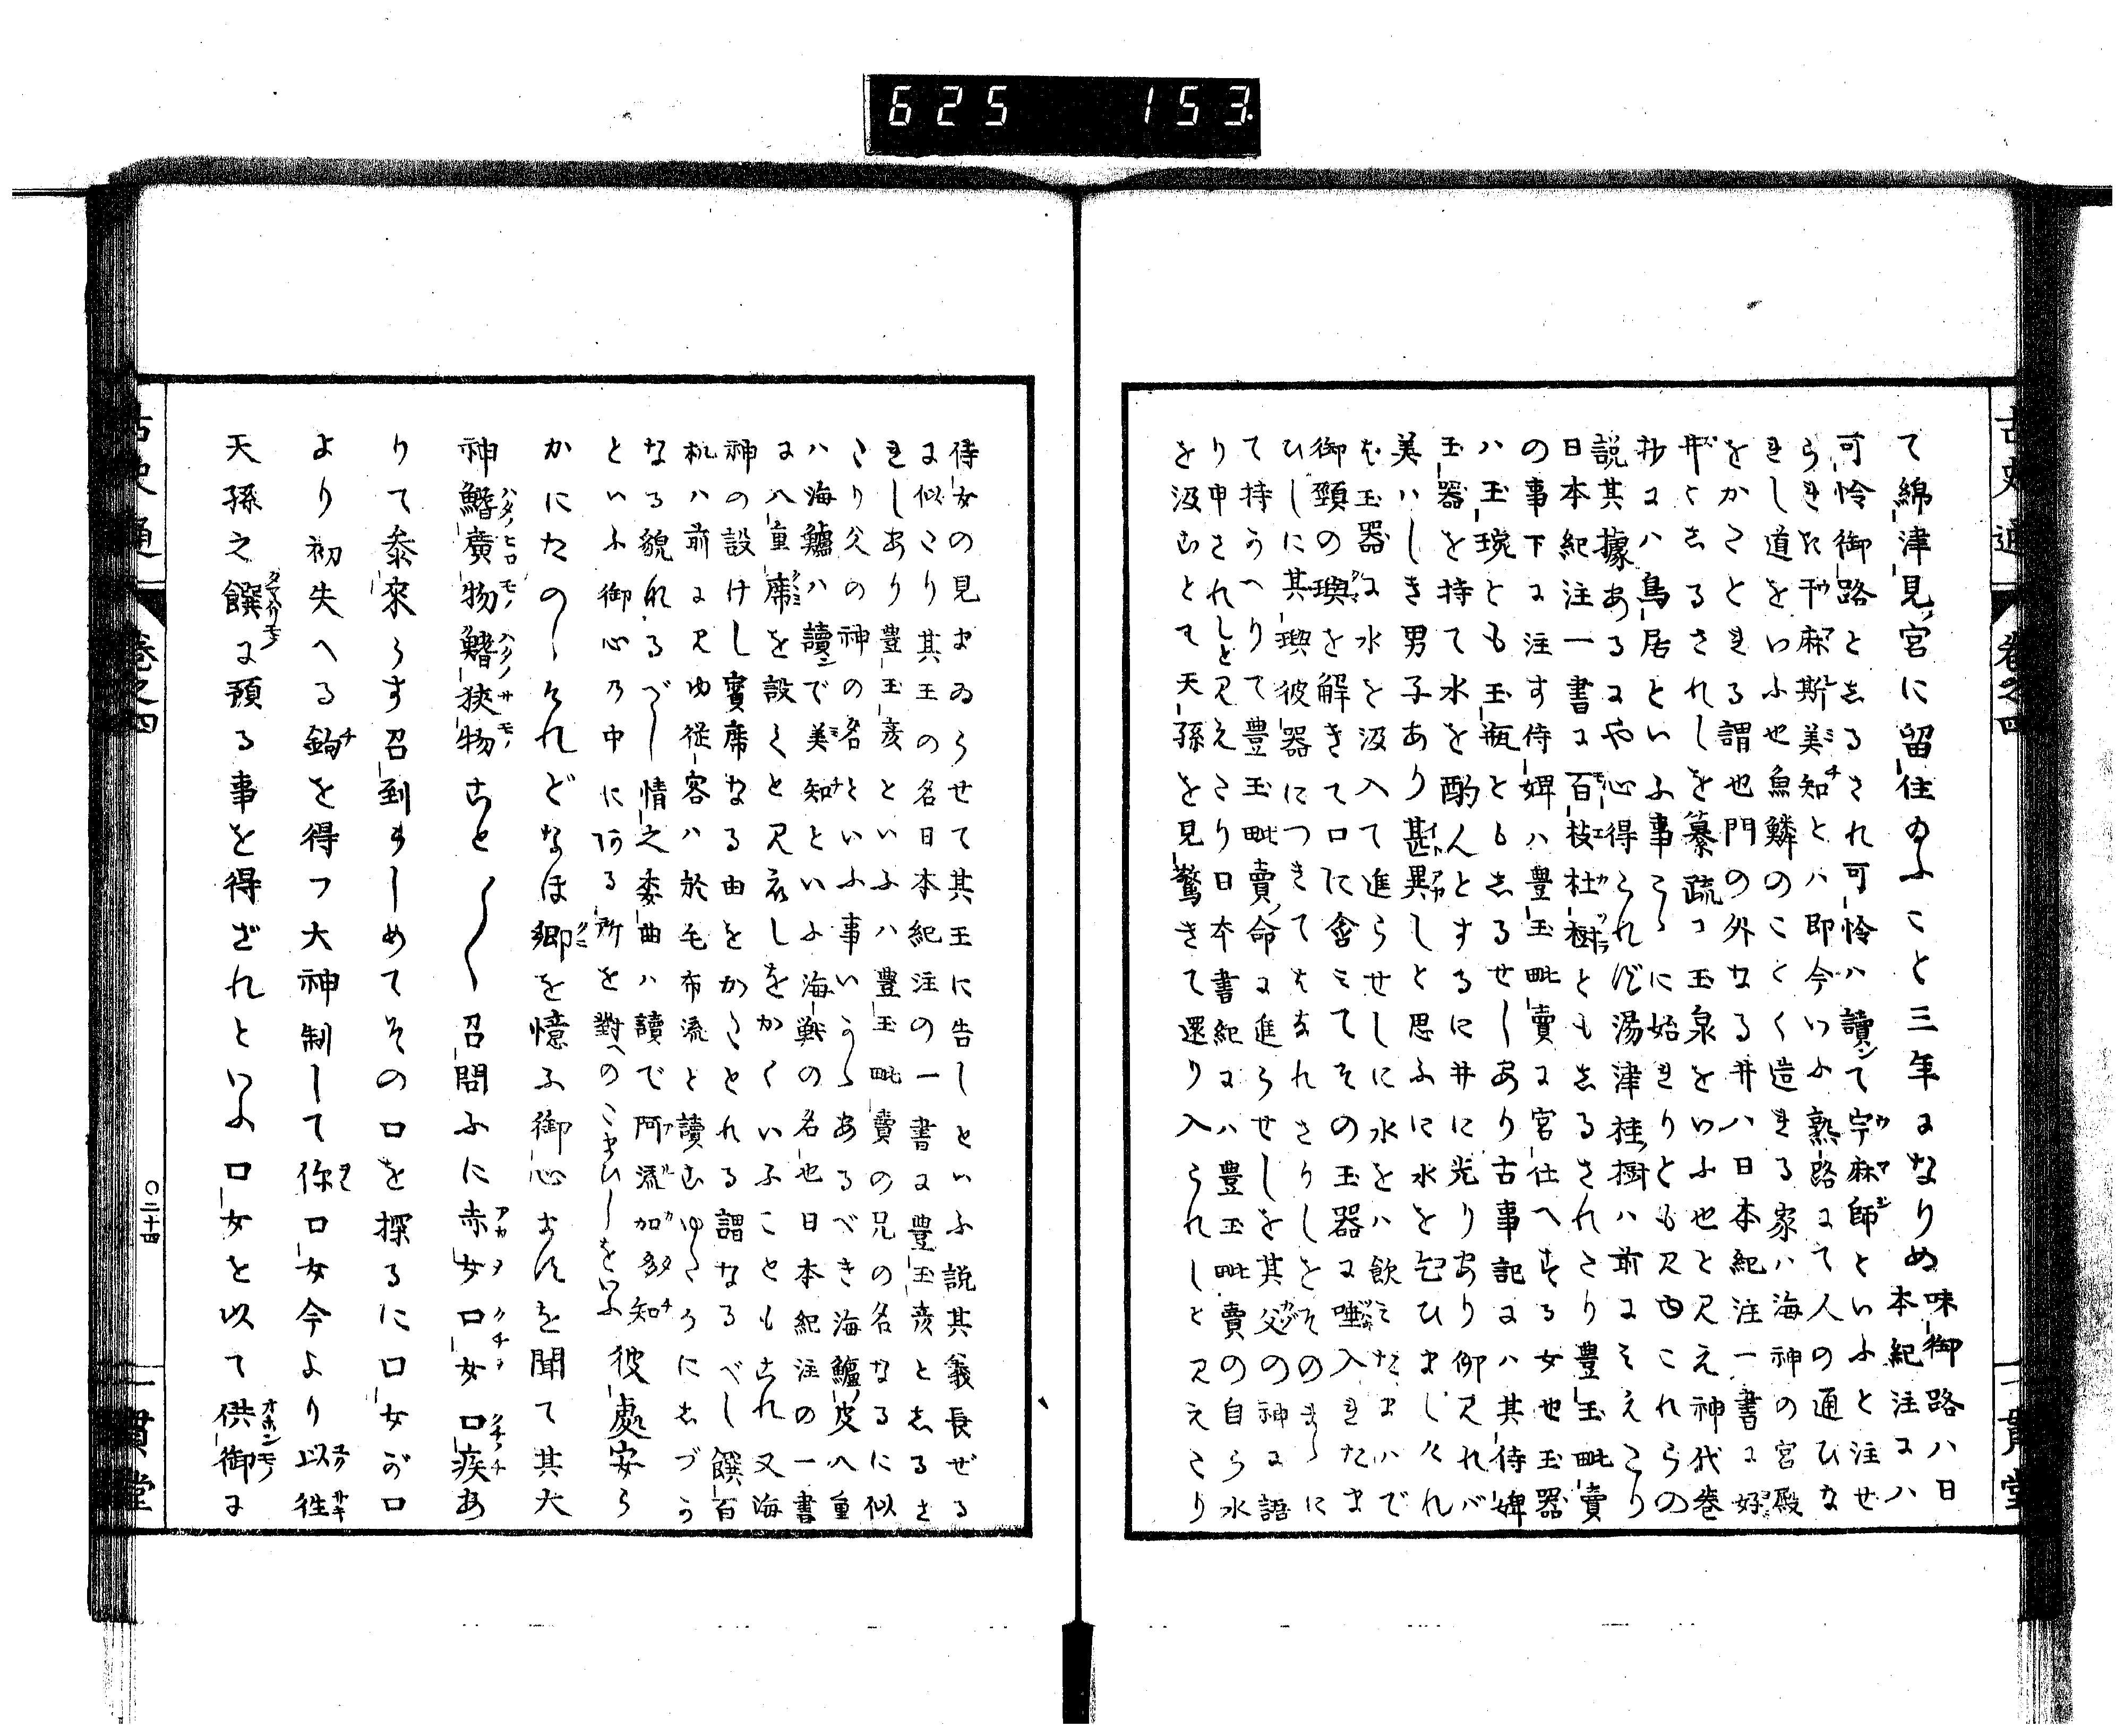 625 153
古史通
巻之四
一貫堂
て綿津見宮に留住のふこと三年になりぬ
味御路ハ日
本紀注にハ
可怜御路としるされ可怜ハ讀て宇麻師といふと注せ
られき汗麻斯美知とハ即今いふ熟路にて人の通ひな
れし道をいふ也魚鱗のことく造れる家ハ海神の宮殿
をかたとれる謂也門の外なる井ハ日本紀注一書に好
井としるされしを纂疏に玉泉をいふ也と見え神代巻
抄にハ鳥居といふ事こゝに始れりとも見ゆこれらの
説其據あるにや心得られず湯津桂樹ハ前にみえたり
日本紀注一書に百枝杜樹ともしるされたり豊玉毗賣
の事下に注す侍婢ハ豊玉毗賣に宮仕へする女也玉器
ハ玉琓とも玉瓶ともしるせしあり古事記にハ其侍婢
玉器を持て水を酌んとするに井に光りあり仰見れバ
美ハしき男子あり甚異しと思ふに水を乞ひましけれ
ば玉器に水を汲入て進らせしに水をハ飲みたまハで
御頸の璵を解きて口に含みてその玉器に唾入れたま
ひしに其璵彼器につきてはなれさりしをそのまゝに
て持うへりて豊玉毗賣命に進らせしを其父の神に語
り申されしと見えたり日本書紀にハ豊玉毗賣の自ら水
を汲むとて天孫を見驚きて還り入られしと見えたり
侍女の見まゐらせて其王に告しといふ説其義長ぜる
に似たり其王の名日本紀注の一書に豊玉彦としるさ
れしあり豊玉彦といふハ豊玉毗賣の兄の名なるに似
たり父の神の名といふ事いうゝあるべき海鱸皮八重
ハ海鱸ハ讀で美知といふ海戦の名也日本紀注の一書
に八重席を設くと見えしをかくいふこともあれ又海
神の設けし賓席なる由をかたとれる謂なるべし饌百
机ハ前に見ゆ從客ハ於毛布流と讀むゆたうにしづう
なる貌ねるづし情之委曲ハ讀で阿流加多知
といふ御心の中に阿る所を對へのこまひしをいふ 彼處安ら
かにたのしそれどなほ郷を憶ふ御心あんを聞て其大
神鰭廣物鰭狭物あと〳〵召問ふに赤女口女口疾あ
りて叅來らす召到ましめてその口を探るに口女が口
より初失へる鉤を得つ大神制して你口女今より以徃
天孫之饌に預る事を得ざれといふ口女を以て供御に
〇二十四
古史通
巻之四
一貫堂